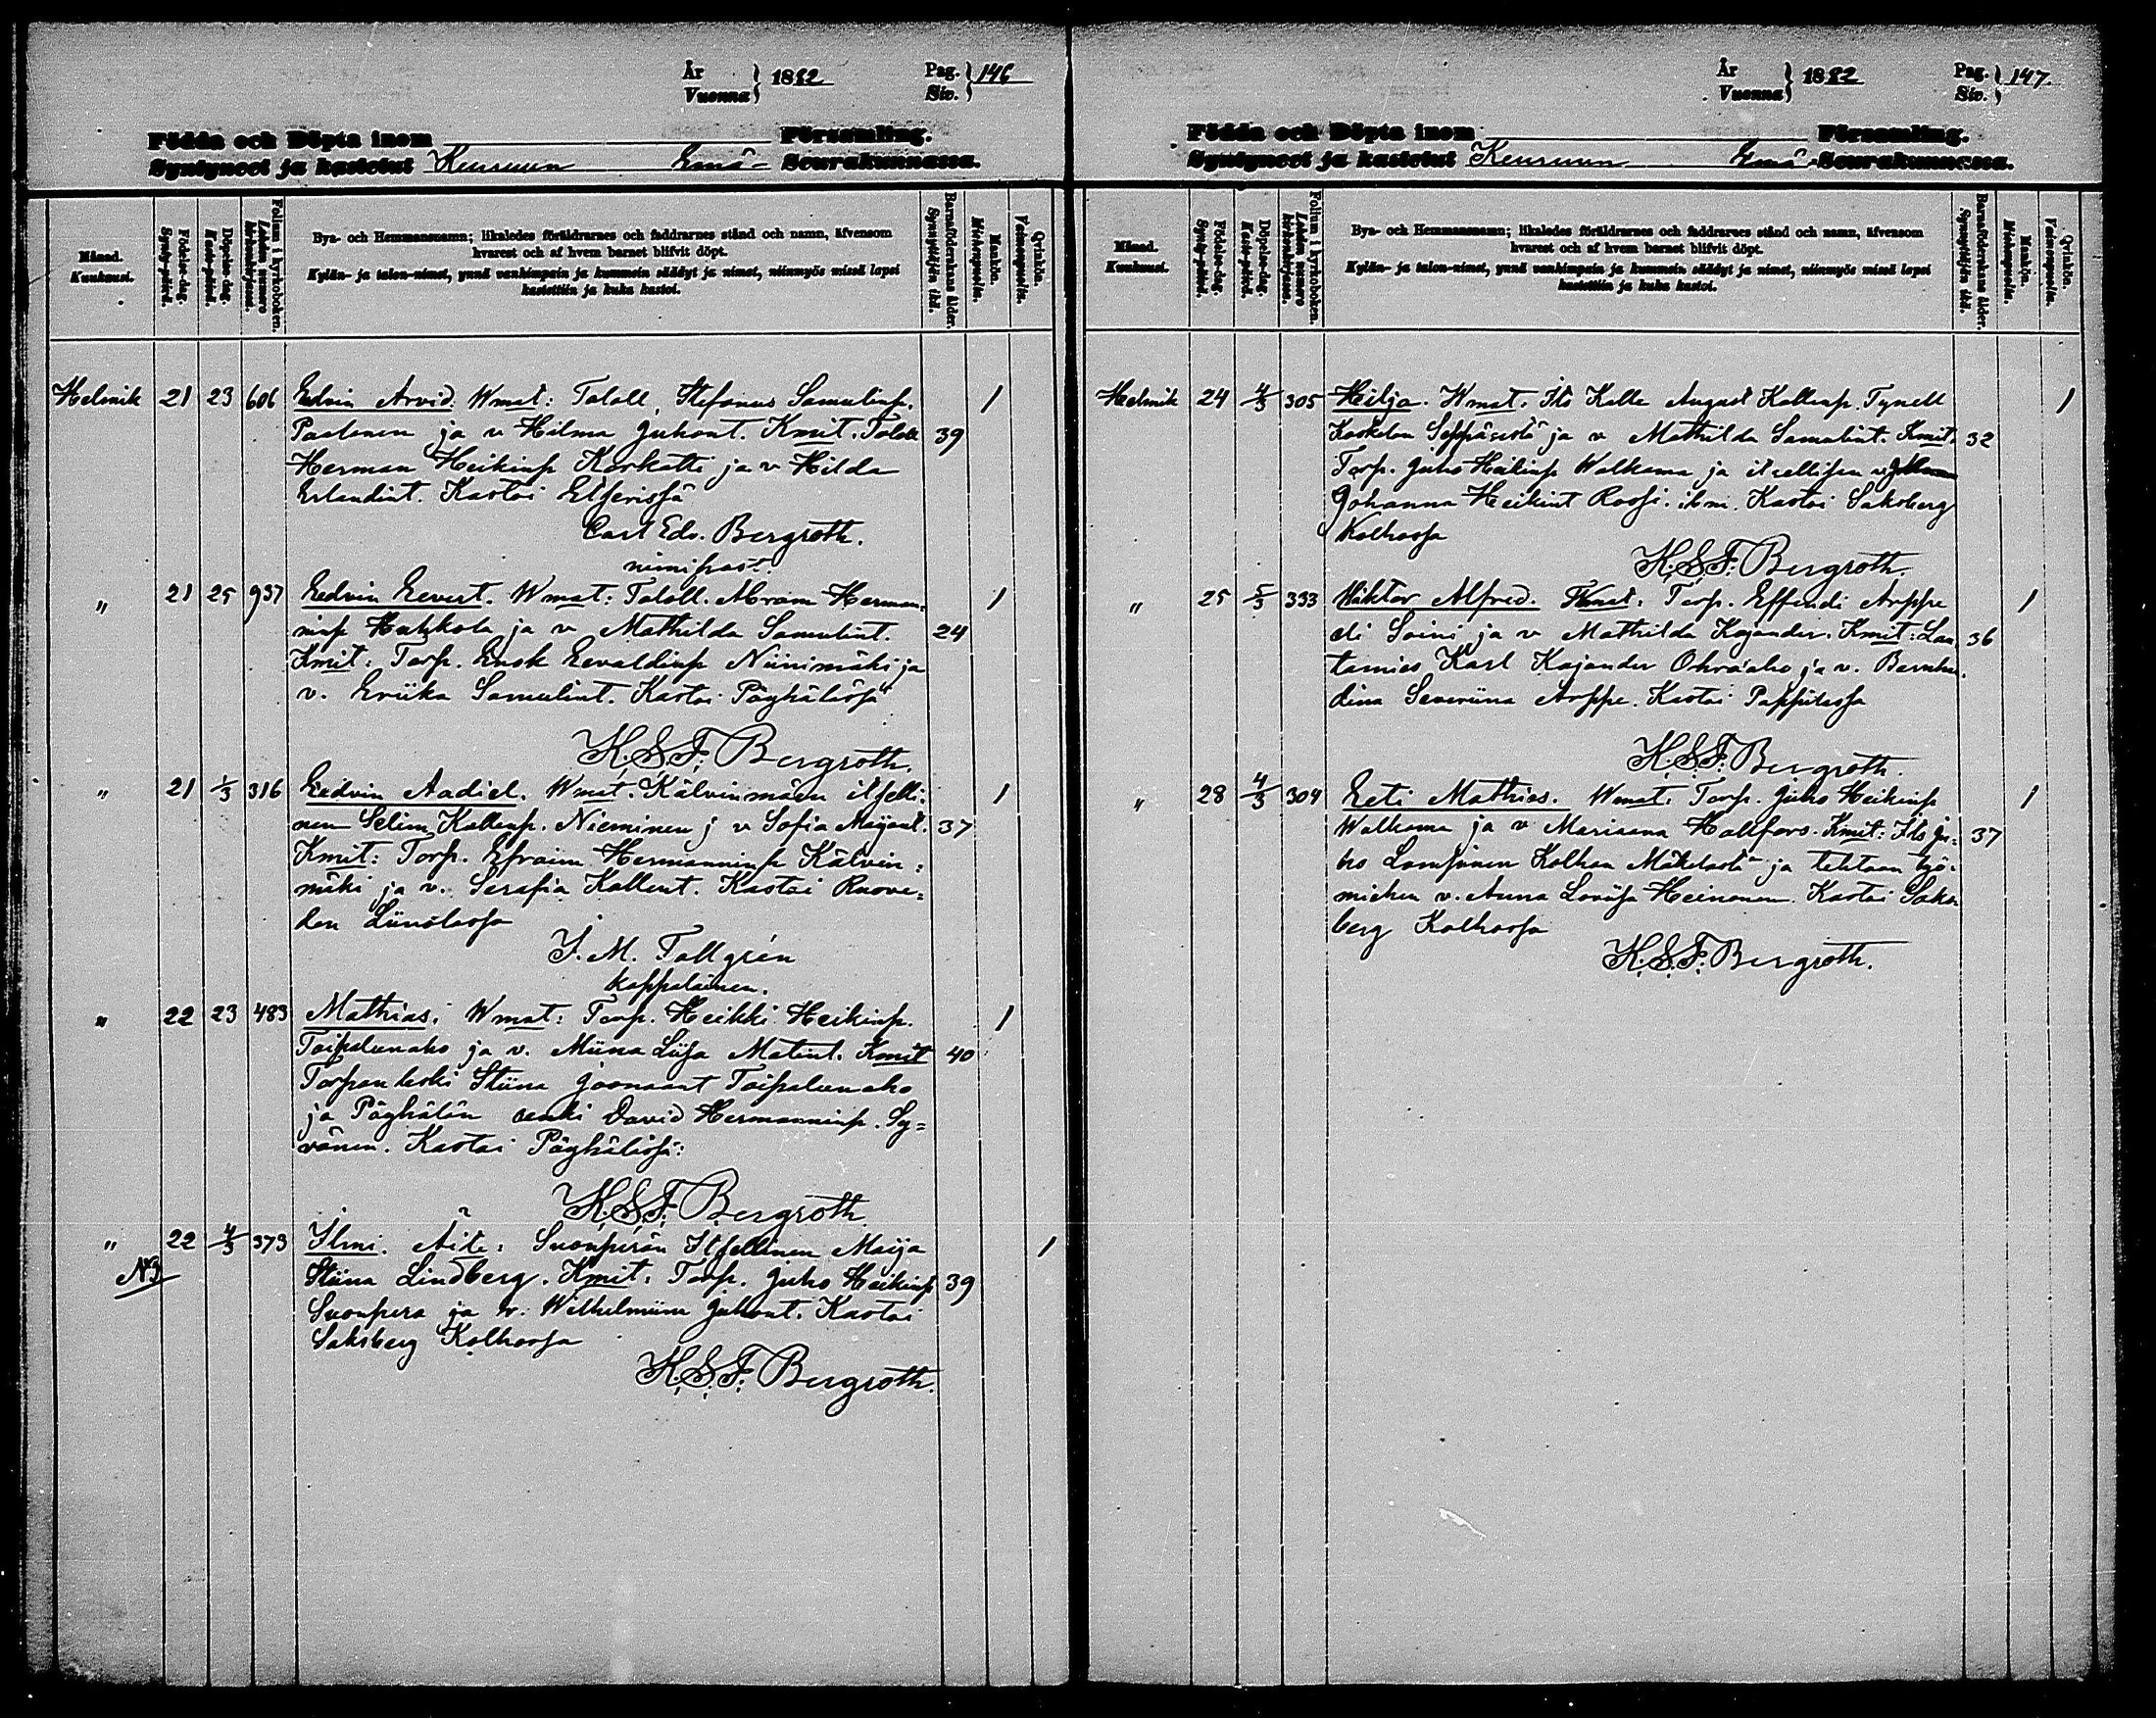 År
Vuonna } 1882
Pag.
Siv. } 146
Födda och Döpta inom Församling.
Syntyneet ja kastetut Keuruun Emä- Seurakunnassa.
Månad.
Kuukausi.
Födelse-dag.
Synty-päivä.
Döpelse-dag.
Kaste-päivä.
Folium i kyrkoboken.
Lehden numero kirkonkirjassa.
Bya- och Hemmansnamn; likaledes föräldrarnes och faddrarnes stånd och namn, äfvensom
hvarest och af hvem barnet blifvit döpt.
Kylän- ja talon-nimet, ynnä vanhimpain ja kummein säädyt ja nimet, niinmyös missä lapsi
kastettiin ja kuka kastoi.
Barnaföderskans ålder.
Synnyttäjän ikä.
Mankön.
Miehenpuolia.
Qvinkön.
Vaimonpuolia.
Helmik 21 23 606 Edvin Arvid. Wmat: Taloll. Stefanus Samulinp. 1
Paalanen ja v Hilma Juhont. Kmit. Taloll 39
Herman Heikinp Korkatti ja v Hilda
Erlandint. Kastoi
Carl Edv. Bergroth.
nimipast.
" 21 25 937 Eedvin Eevert. Wmat: Taloll. Abram Herman- 1
ninp Huhkola ja v Mathilda Samulint. 24
Kmit: Torp. Enok Eevaldinp Niinimäki ja
v. Eriika Samulint. Kastoi Pöyhölässä
K.S.F. Bergroth.
" 21 1/3 316 Eedvin Aadiel. Wmat. Kälvinmäen itselli- 1
nen Selim Kallenp. Nieminen j v Sofia Maijant. 37
Kmit: Torp. Efraim Hermanninp Kälvin-
mäki ja v. Serafia Kallent. Kastoi Ruove-
den
J. M. Tallgrén
kappalainen.
" 22 23 483 Mathias. Wmat: Torp. Heikki Heikinp. 1
Taipaleenaho ja v. Miina Liisa Matint. Kmit 40
Torpan leski Stiina Joonaant Taipaleenaho
ja Pöyhölän renki David Hermanninp. Sy-
vänen. Kastoi Pöyhölässä:
K.S.F. Bergroth
" 22 4/3 373 Ilmi. Äite: Suonperän Itsellinen Maija 1
Stiina Lindberg. Kmit: Torp. Juho Heikinp 39
Suonpera ja v. Wilhelmiina Juhont. Kastoi
Saksberg Kolhossa
K.S.F. Bergroth.
År
Vuonna } 1882
Pag.
Siv. } 147.
Födda och Döpta inom Församling.
Syntyneet ja kastetut Keuruun Emä- Seurakunnassa.
Månad.
Kuukausi.
Födelse-dag.
Synty-päivä.
Döpelse-dag.
Kaste-päivä.
Folium i kyrkoboken.
Lehden numero kirkonkirjassa.
Bya- och Hemmansnamn; likaledes föräldrarnes och faddrarnes stånd och namn, äfvensom
hvarest och af hvem barnet blifvit döpt.
Kylän- ja talon-nimet, ynnä vanhimpain ja kummein säädyt ja nimet, niinmyös missä lapsi
kastettiin ja kuka kastoi.
Barnaföderskans ålder.
Synnyttäjän ikä.
Mankön.
Miehenpuolia.
Qvinkön.
Vaimonpuolia.
Helmik 24 4/3 305 Hilja. Wmat. Its Kalle August Kallenp. Tynell 1
Koskelan Seppäsestä ja v Mathilda Samulint. Kmit. 32
Torp. Juho Heikinp Walkama ja itsellisen v
Johanna Heikint Rossi. Kastoi Saksberg
Kolhossa
K.S.F. Bergroth.
" 25 5/3 333 Wiktor Alfred. Wmat: Torp. Effendi Arppe 1
eli Soini ja v Mathilda Kajander. Kmit: Lau- 36
tamies Karl Kajander Ohraaho ja v. Bernhar-
dina Severiina Arppe. Kastoi Pappilassa
K.S.F. Bergroth.
" 28 4/3 304 Eeti Mathias. Wmat: Torp. Juho Heikinp 1
Walkama ja v Mariaana Hallfors. Kmit: Its Ju- 37
ho Lampinen Kolhon Mäkelästä ja tehtaan työ-
miehen v. Anna Loviisa Heinonen. Kastoi Saks-
berg Kolhossa
K.S.F. Bergroth.